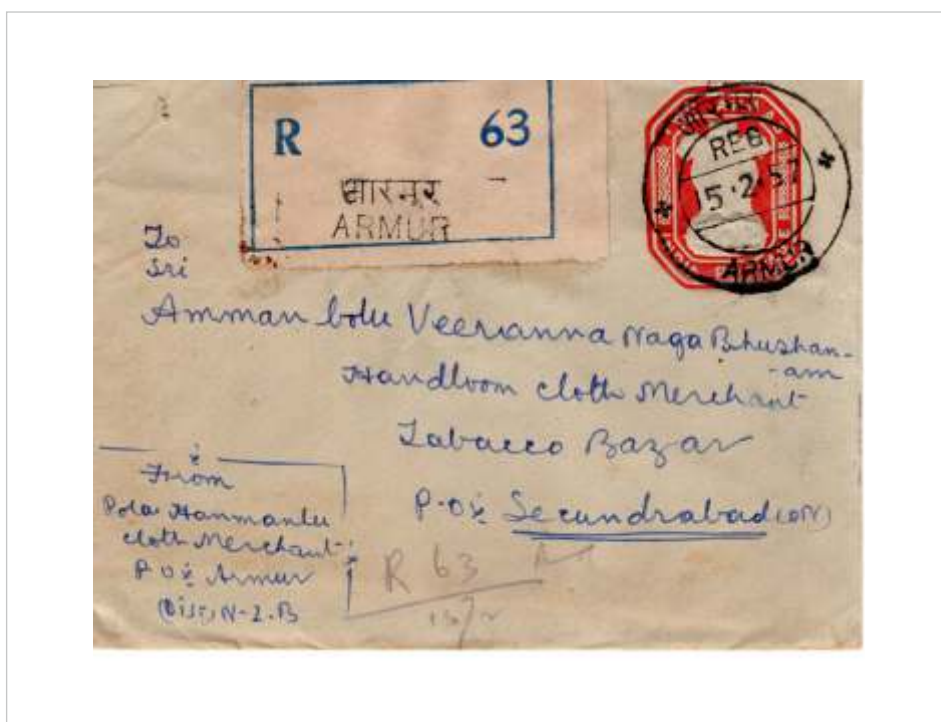 R 63
आरमूर
ARMUR
REG
15.2.57
ARMUR
To
Sri
Amman bolu Veeranna Naga Bhushan-
-am
Handloom cloth Merchant
Tabacco Bazar
P.O% Secundrabad (DN)
From
Pola Hanmanlu
cloth Merchant
P.O% Armur
(Dist) N-Z.B
R 63
15/2